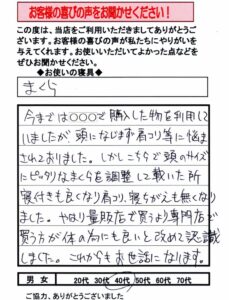 お客様の喜びの声をお聞かせください!
この度は、当店をご利用いただきましてありがとうございます。お客様の喜びの声が私たちにやりがいを与えてくれます。お使いいただいてよかった点などをぜひお聞かせください。
◆お使いの寝具◆
まくら
今までは○○○で購入した物を利用して
いましたが、頭になじまず肩コリ等に悩ま
されておりました。しかしこちらで頭のサイズ
にピッタリなまくらを調整して戴いた所
寝付きも良くなり肩こり、寝ちがえも無くなり
ました。やはり量販店で買うより専門店で
買う方が体の為にも良いと改めて認識
しました。これからもお世話になります。
男 女 20代 30代 40代 50代 60代 70代
ご協力、ありがとうございました